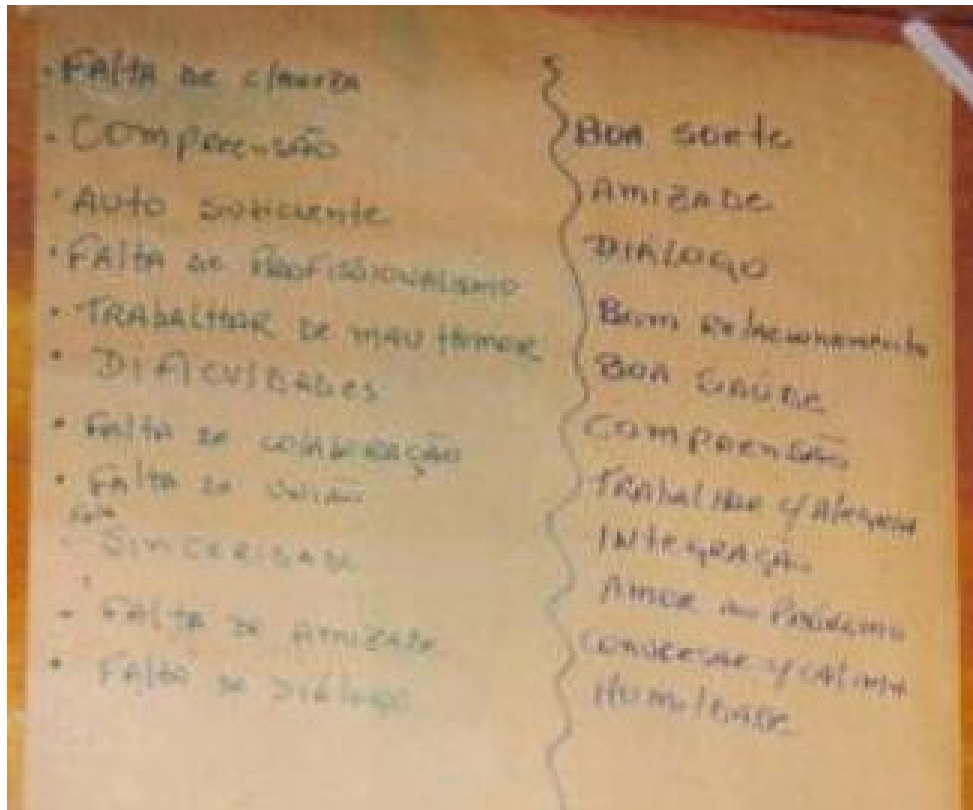 · FALTA DE CLAREZA
· COMPREENSÃO
· AUTO SUFICIENTE
· FALTA DE PROFISSIONALISMO
· TRABALHAR DE MAU HUMOR
· DIFICULDADES
· FALTA DE COLABORAÇÃO
· FALTA DE UNIÃO
FALTA
- SINCERIDADE
- FALTA DE AMIZADE
· FALTA DE DIÁLOGO
BOA SORTE
AMIZADE
DIÁLOGO
BOM RELACIONAMENTO
BOA SAÚDE
COMPREENSÃO
TRABALHAR C/ ALEGRIA
INTEGRAÇÃO
AMOR AO PRÓXIMO
CONVERSAR C/ CALMA
HUMILDADE